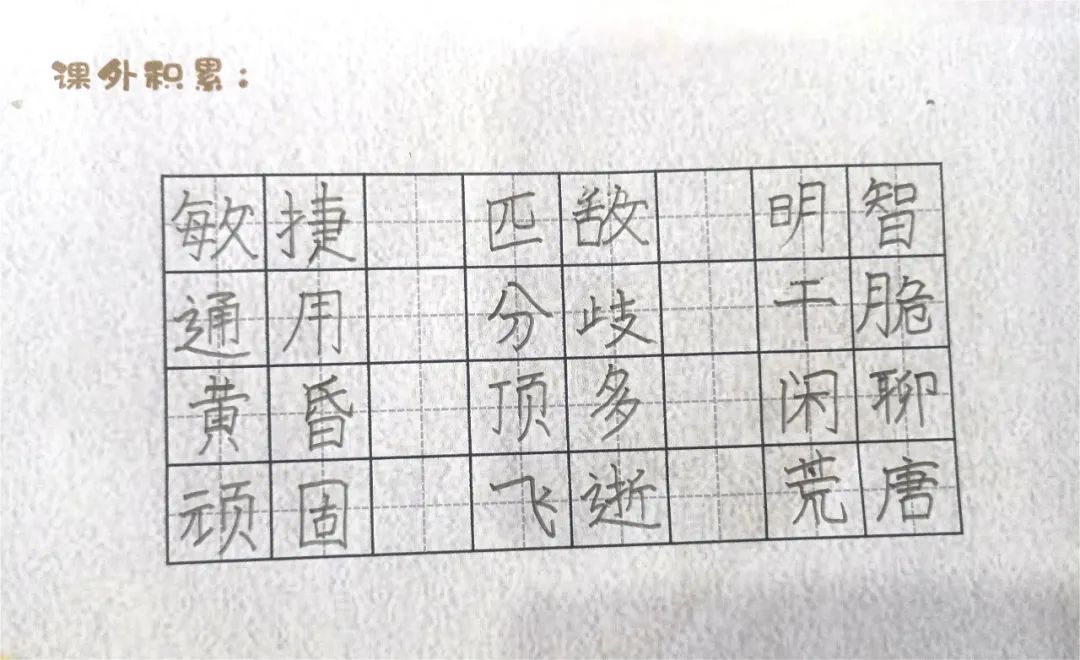 课外积累：
敏捷 匹敌 明智
通用 分歧 干脆
黄昏 顶多 闲聊
顽固 飞逝 荒唐